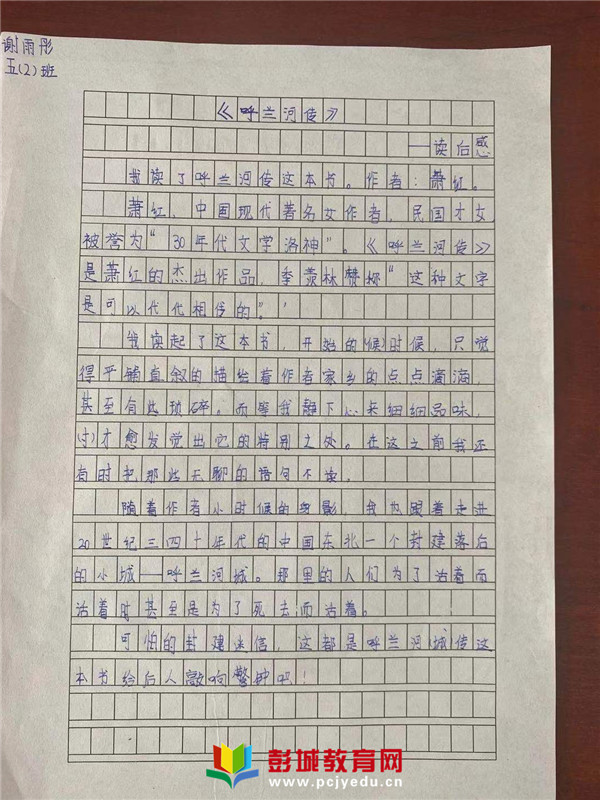 谢雨彤
五(2)班
《呼兰河传》
——读后感
我读了呼兰河传这本书。作者：萧红。
萧红，中国现代著名女作者，民国才女，
被誉为“30年代文学洛神”。《呼兰河传》
是萧红的杰出作品，季羡林赞称“这种文字
是可以代代相传的”。
我读起了这本书，开始的(候)时候，只觉
得平铺直叙的描绘着作者家乡的点点滴滴，
甚至有些琐碎。而等我静下心来细细品味，
(寸)才愈发觉出它的特别之处。在这之前我还
有时把那些无聊的语句不读。
随着作者小时候的身影，我也跟着走进
20世纪三四十年代的中国东北一个封建落后
的小城——呼兰河城。那里的人们为了活着而
活着时甚至是为了死去而活着。
可怕的封建迷信，这都是呼兰河(城)传这
本书给后人敲响警钟吧！
彭城教育网
www.pcjyedu.cn